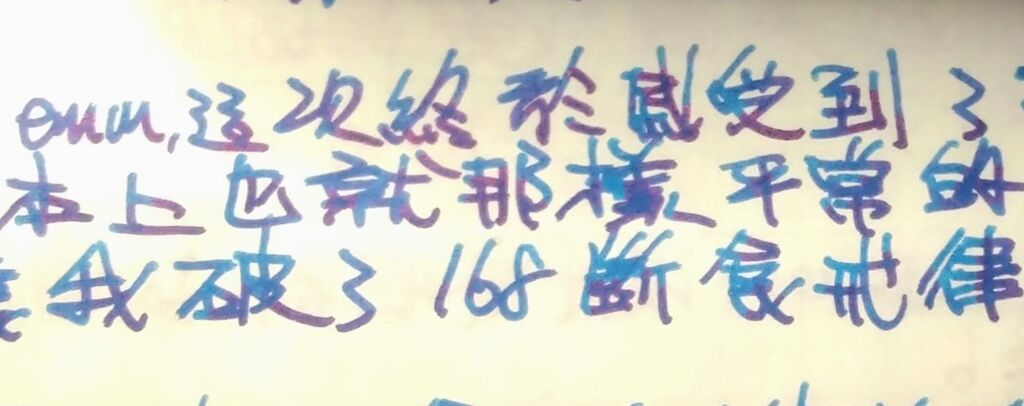 emm,這次終於感受到了
本上也就那樣平常的
我破了168斷食戒律